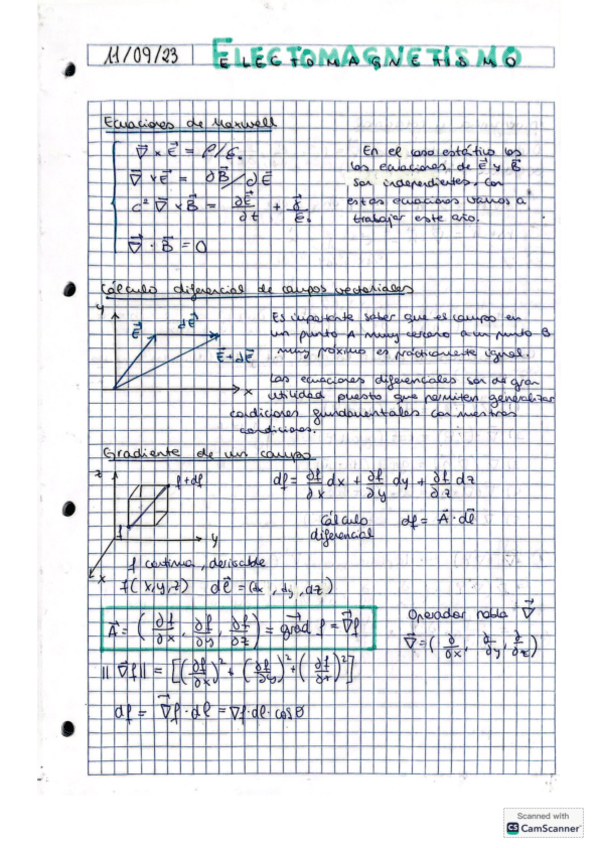 11/09/23 ELECTOMAGNETISMO
Ecuaciones de Maxwell
∇⃗ × E⃗ = ρ/ε₀
∇⃗ × E⃗ = ∂B⃗/∂E⃗
c² ∇⃗ × B⃗ = ∂E⃗/∂t + j⃗/ε₀
∇⃗ · B⃗ = 0
En el caso estático los
las ecuaciones de E⃗ y B⃗
son independientes, con
estas ecuaciones vamos a
trabajar este año.
Cálculo diferencial de campos vectoriales
y
E⃗
dE⃗
E⃗+dE⃗
x
Es importante saber que el campo en
un punto A muy cercano a un punto B
muy próximo es prácticamente igual.
Las ecuaciones diferenciales son de gran
utilidad puesto que permiten generalizar
condiciones fundamentales con nuestras
condiciones.
Gradiente de un campo
z
f+df
f
y
x
df = ∂f/∂x dx + ∂f/∂y dy + ∂f/∂z dz
Cálculo
diferencial
df = A⃗ · dl⃗
f continua, derivable
f(x,y,z) dl⃗ = (dx, dy, dz)
A⃗ = (∂f/∂x, ∂f/∂y, ∂f/∂z) = grad⃗ f = ∇⃗f
Operador nabla ∇⃗
∇⃗ = (∂/∂x, ∂/∂y, ∂/∂z)
||∇⃗f|| = [(∂f/∂x)² + (∂f/∂y)² + (∂f/∂z)²]
df = ∇⃗f · dl⃗ = ∇f · dl · cos θ
Scanned with
CS CamScanner